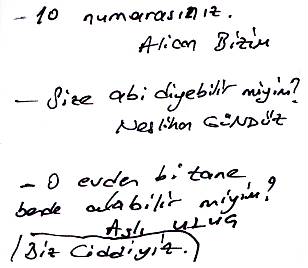 - 10 numarasınız.
Alican Bizim
- Size abi diyebilir miyim?
Neslihan GÜNDÜZ
- O evden bi tane
bende alabilir miyim?
Aslı ULUĞ
Biz Ciddiyiz.